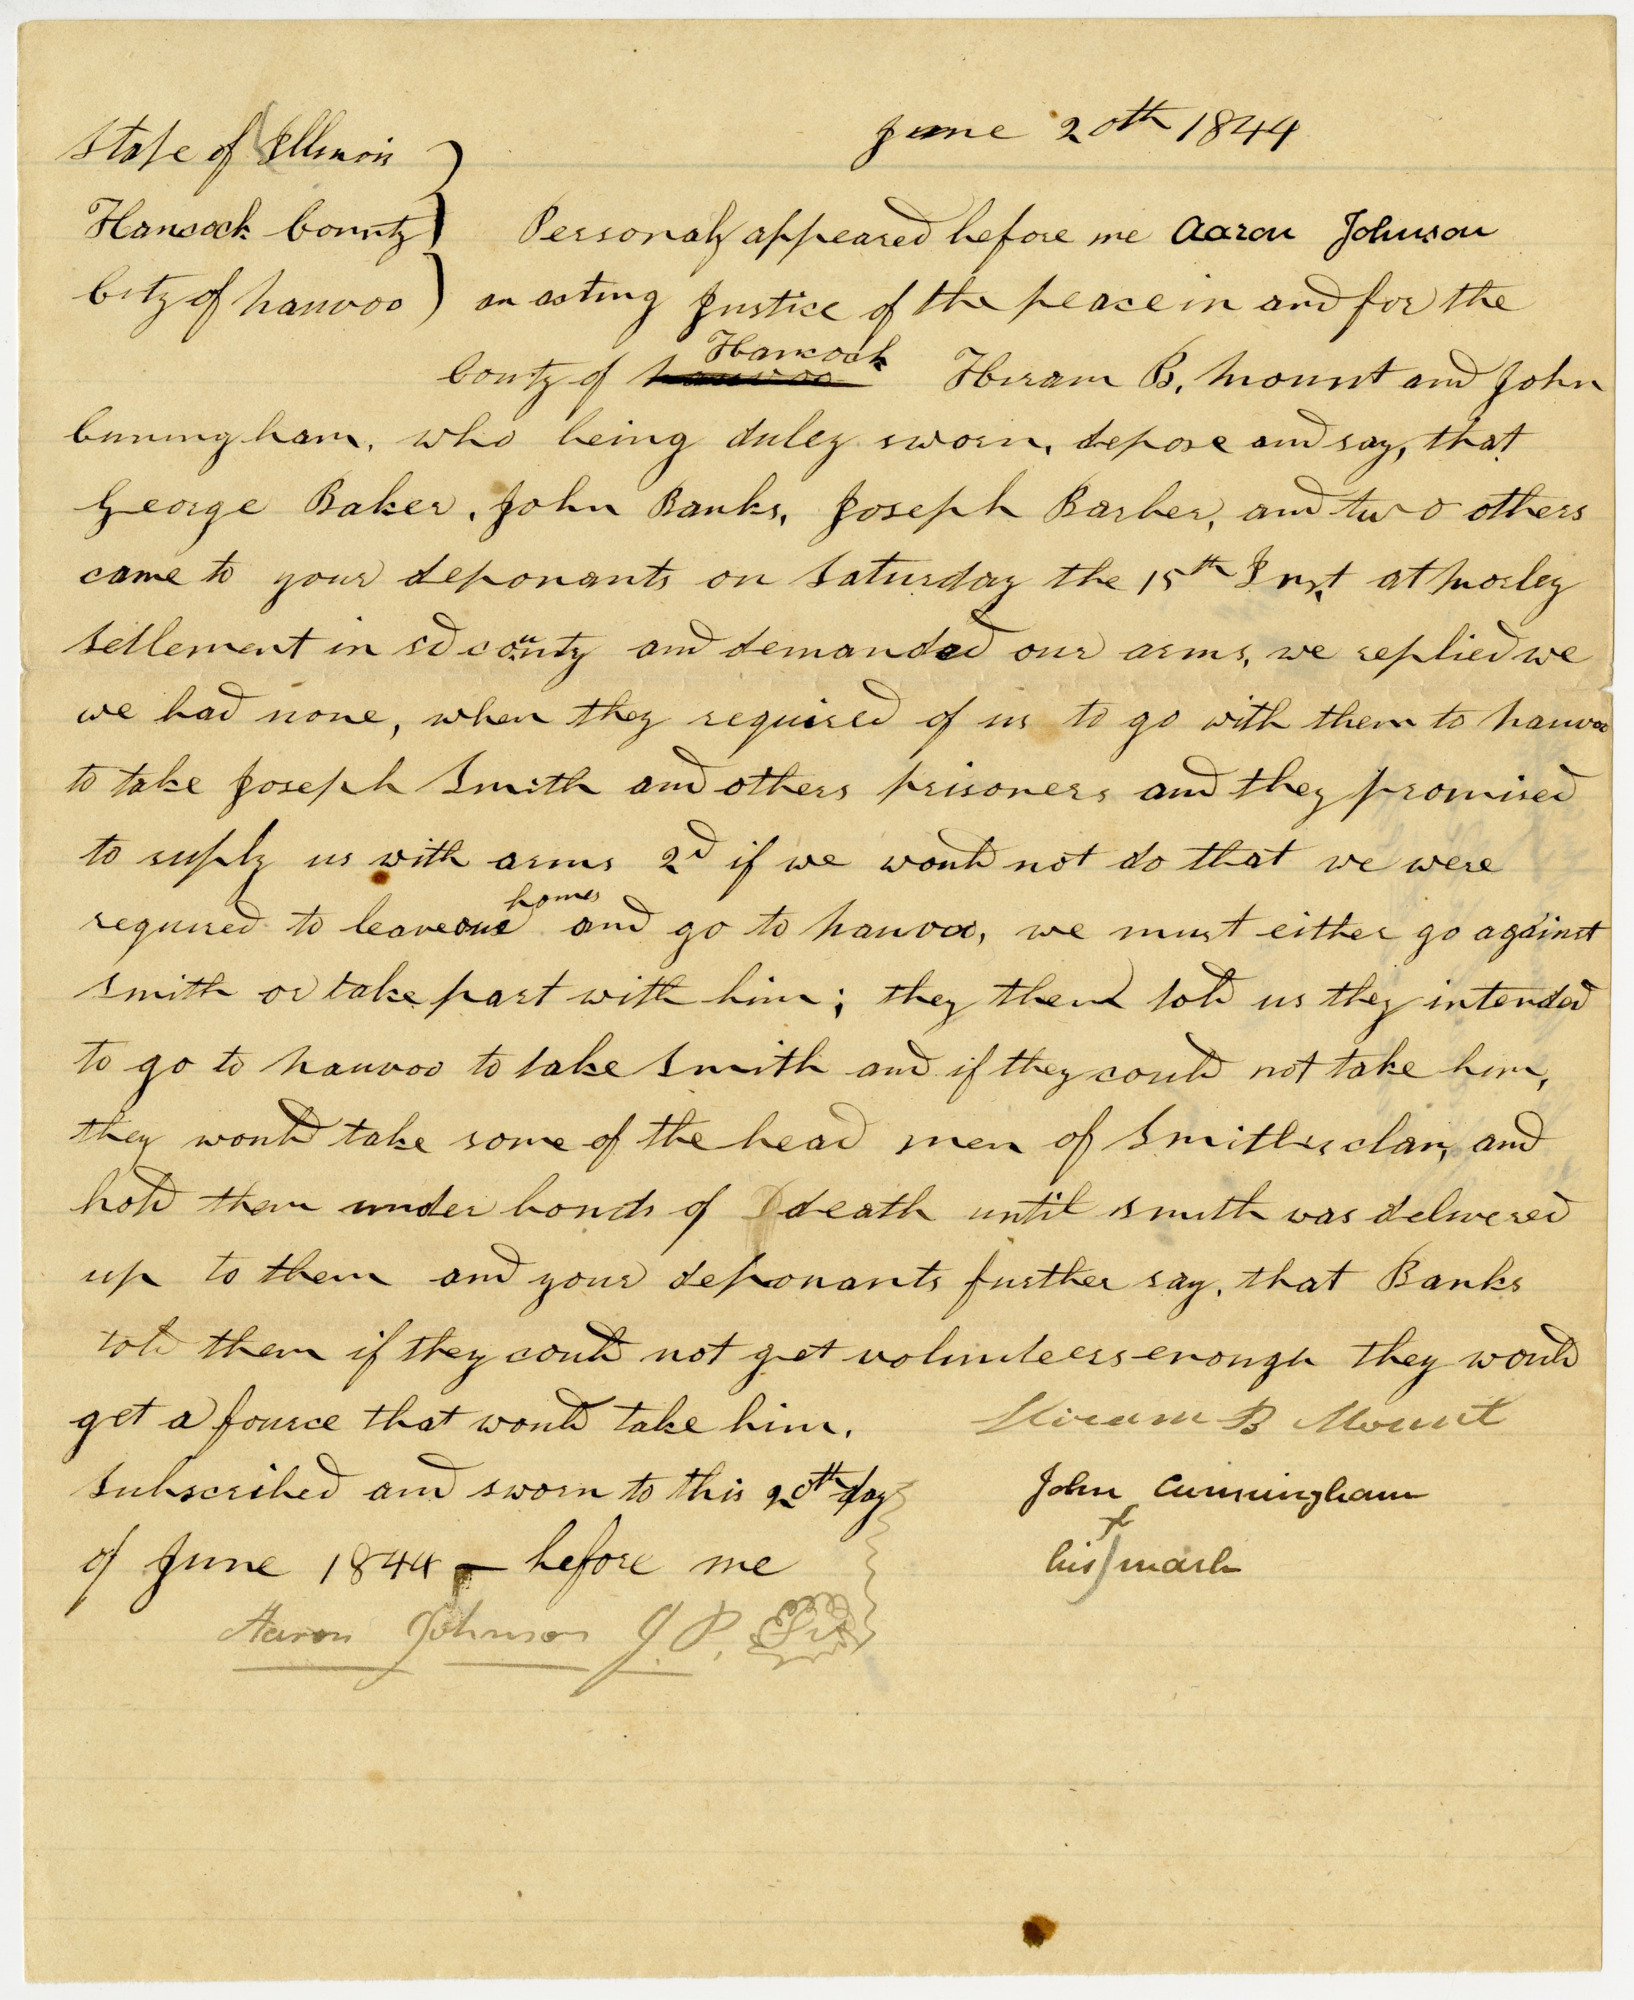 June 20th 1844
State of Illinois
Hancock County
City of Nauvoo
Personaly appeared before me Aaron Johnson
an acting Justice of the peace in and for the
Hancock
Conty of nauvoo Hiram B. Mount and John
Cuningham, who being duley sworn, depose and say, that
George Baker, John Banks, Joseph Barber, and two others
came to your deponants on Saturday the 15th Inst at Morley
Settlement in sd county and demanded our arms, we replied we
we had none, when they required of us to go with them to Nauvoo
to take Joseph Smith and others prisoners and they promised
to suply us with arms 2d if we would not do that we were
homes
required to leave our and go to Nauvoo, we must either go against
Smith or take part with him; they then told us they intended
to go to Nauvoo to take Smith and if they could not take him,
they would take some of the head men of Smiths clan, and
hold them under bonds of death until Smith was delivered
up to them and your deponants further say, that Banks
told them if they could not get volunteers enough they would
get a fource that would take him. Hiram B Mount
Subscribed and sworn to this 20th day John Cunningham
of June 1844 – before me his x mark
Aaron Johnson J. P.